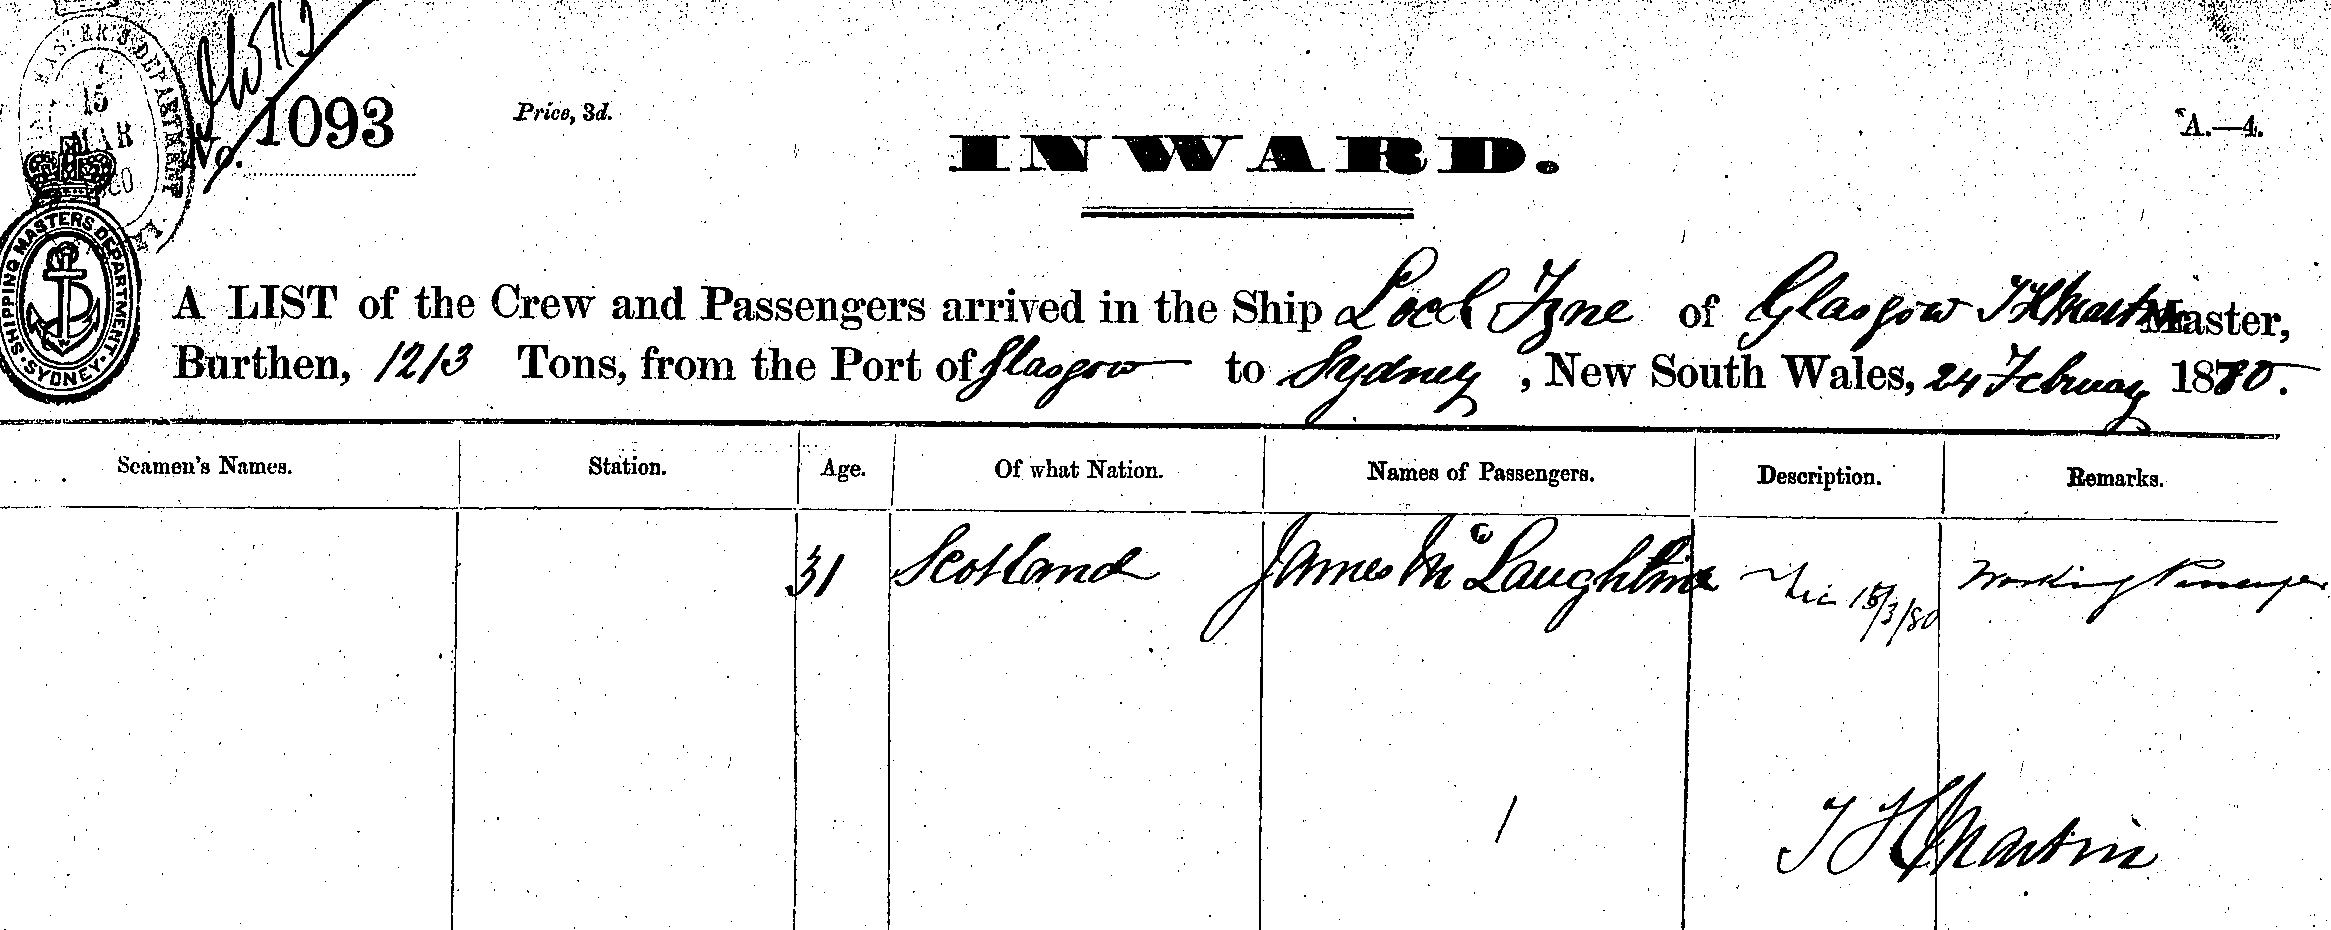 MASTER'S DEPARTMENT
15
MAR
No. 1093
Price, 3d.
A.—4.
INWARD.
SHIPPING MASTERS DEPARTMENT. SYDNEY.
A LIST of the Crew and Passengers arrived in the Ship Loch Fyne of Glasgow T H Martin Master,
Burthen, 1213 Tons, from the Port of Glasgow to Sydney, New South Wales, 24 February 1880.
Seamen's Names. Station. Age. Of what Nation. Names of Passengers. Description. Remarks.
31 Scotland James Mc Laughline 15/3/80 Working Passenger
1
T H Martin